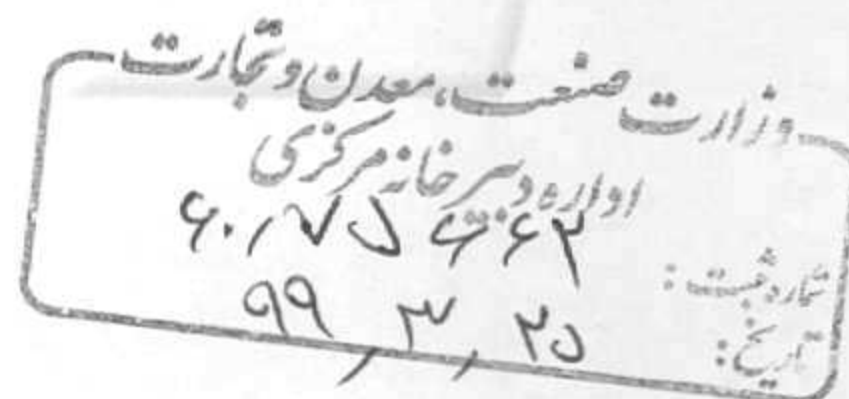 وزارت صنعت، معدن و تجارت
اداره دبیرخانه مرکزی
شماره ثبت: ۶۰/۷۵۶۶۲
تاریخ: ۹۹/۳/۲۵